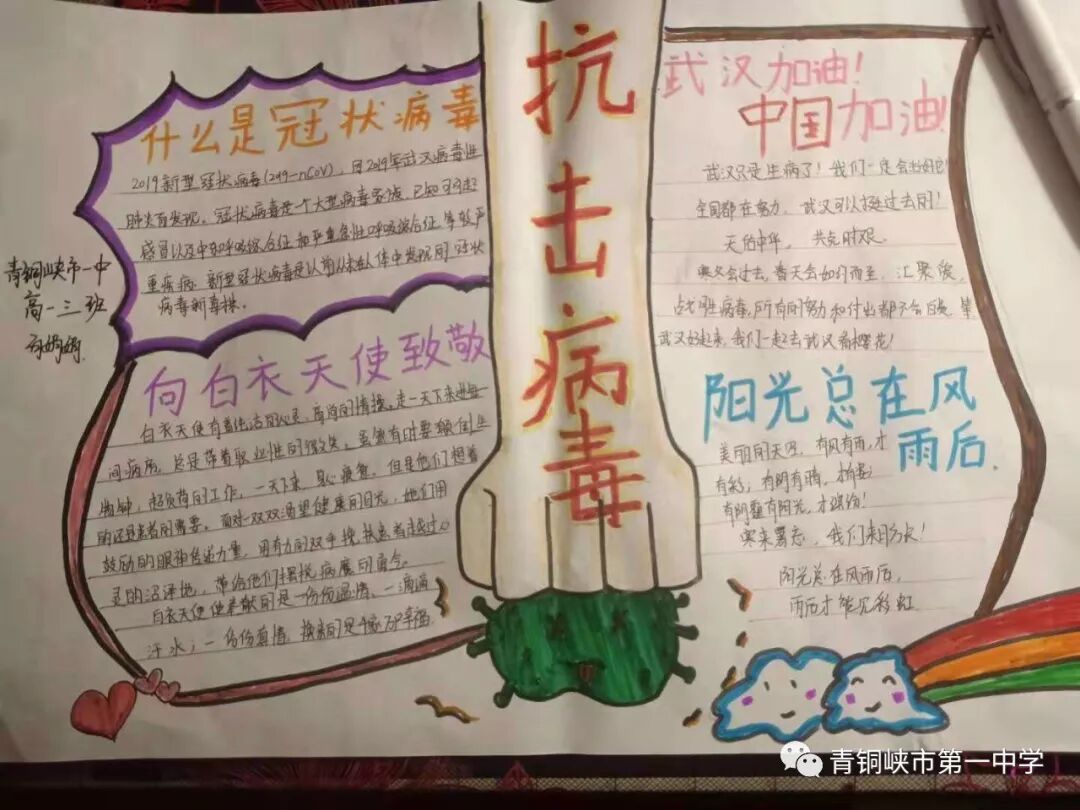 抗击病毒
什么是冠状病毒
2019新型冠状病毒(2019-nCoV),因2019年武汉病毒性
肺炎而发现,冠状病毒是一个大型病毒家族,已知可引起
感冒以及中东呼吸综合征和严重急性呼吸综合征等较严
重疾病.新型冠状病毒是以前从未在人体中发现的冠状
病毒新毒株.
青铜峡市一中
高一三班
向白衣天使致敬
白衣天使有着纯洁的心灵,高尚的情操,走一天下来
问病床,总是带着职业性的微笑,虽然有时要
超负荷的工作,一天下来,身心疲惫.但是他们想着
的还是患者的需要,面对一双双渴望健康的目光,她们用
鼓励的眼神传递力量,用有力的双手搀扶患者越过心
灵的沼泽地,带给他们摆脱病魔的勇气.
白衣天使使奉献的是一份份温情、一滴滴
汗水;一份份真情,换来的是千家万户幸福.
武汉加油!
中国加油!
武汉只是生病了!我们一定会治好它!
全国都在努力,武汉可以挺过去的!
天佑中华,共克时艰.
寒冬会过去,春天会如约而至,汇聚爱,
战胜病毒,所有的努力和付出都不会白费,等
武汉好起来,我们一起去武汉看樱花!
阳光总在风
雨后.
美丽的天空,有风有雨,才
有彩;有阴有晴,
有阴霾有阳光,才缤纷!
寒来暑忘,我们来日方长!
阳光总在风雨后,
雨后才能见彩虹
青铜峡市第一中学